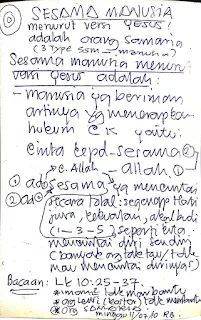 SESAMA MANUSIA
menurut versi YESUS:
adalah orang Samaria
(3 Type ssm manusia)
Sesama manusia menurut
versi Yesus adalah:
- manusia yg beriman
artinya yg menerapkan
hukum CK yaitu:
cinta kpd - sesama ②
* C. Allah - allah ①
① ada sesama yg mencintai
② secara total: segenap hati
jiwa, kekuatan, akal budi
(1-3-5) seperti kita
mencintai diri sendiri
(banyak org tak tau / tdk
mau mencintai dirinya)
Bacaan: Lk 10:25-37.
* imam tdk mau bantu
* org Lewi tdk membantu
* Org samaria
minggu 11/07/10 RB.